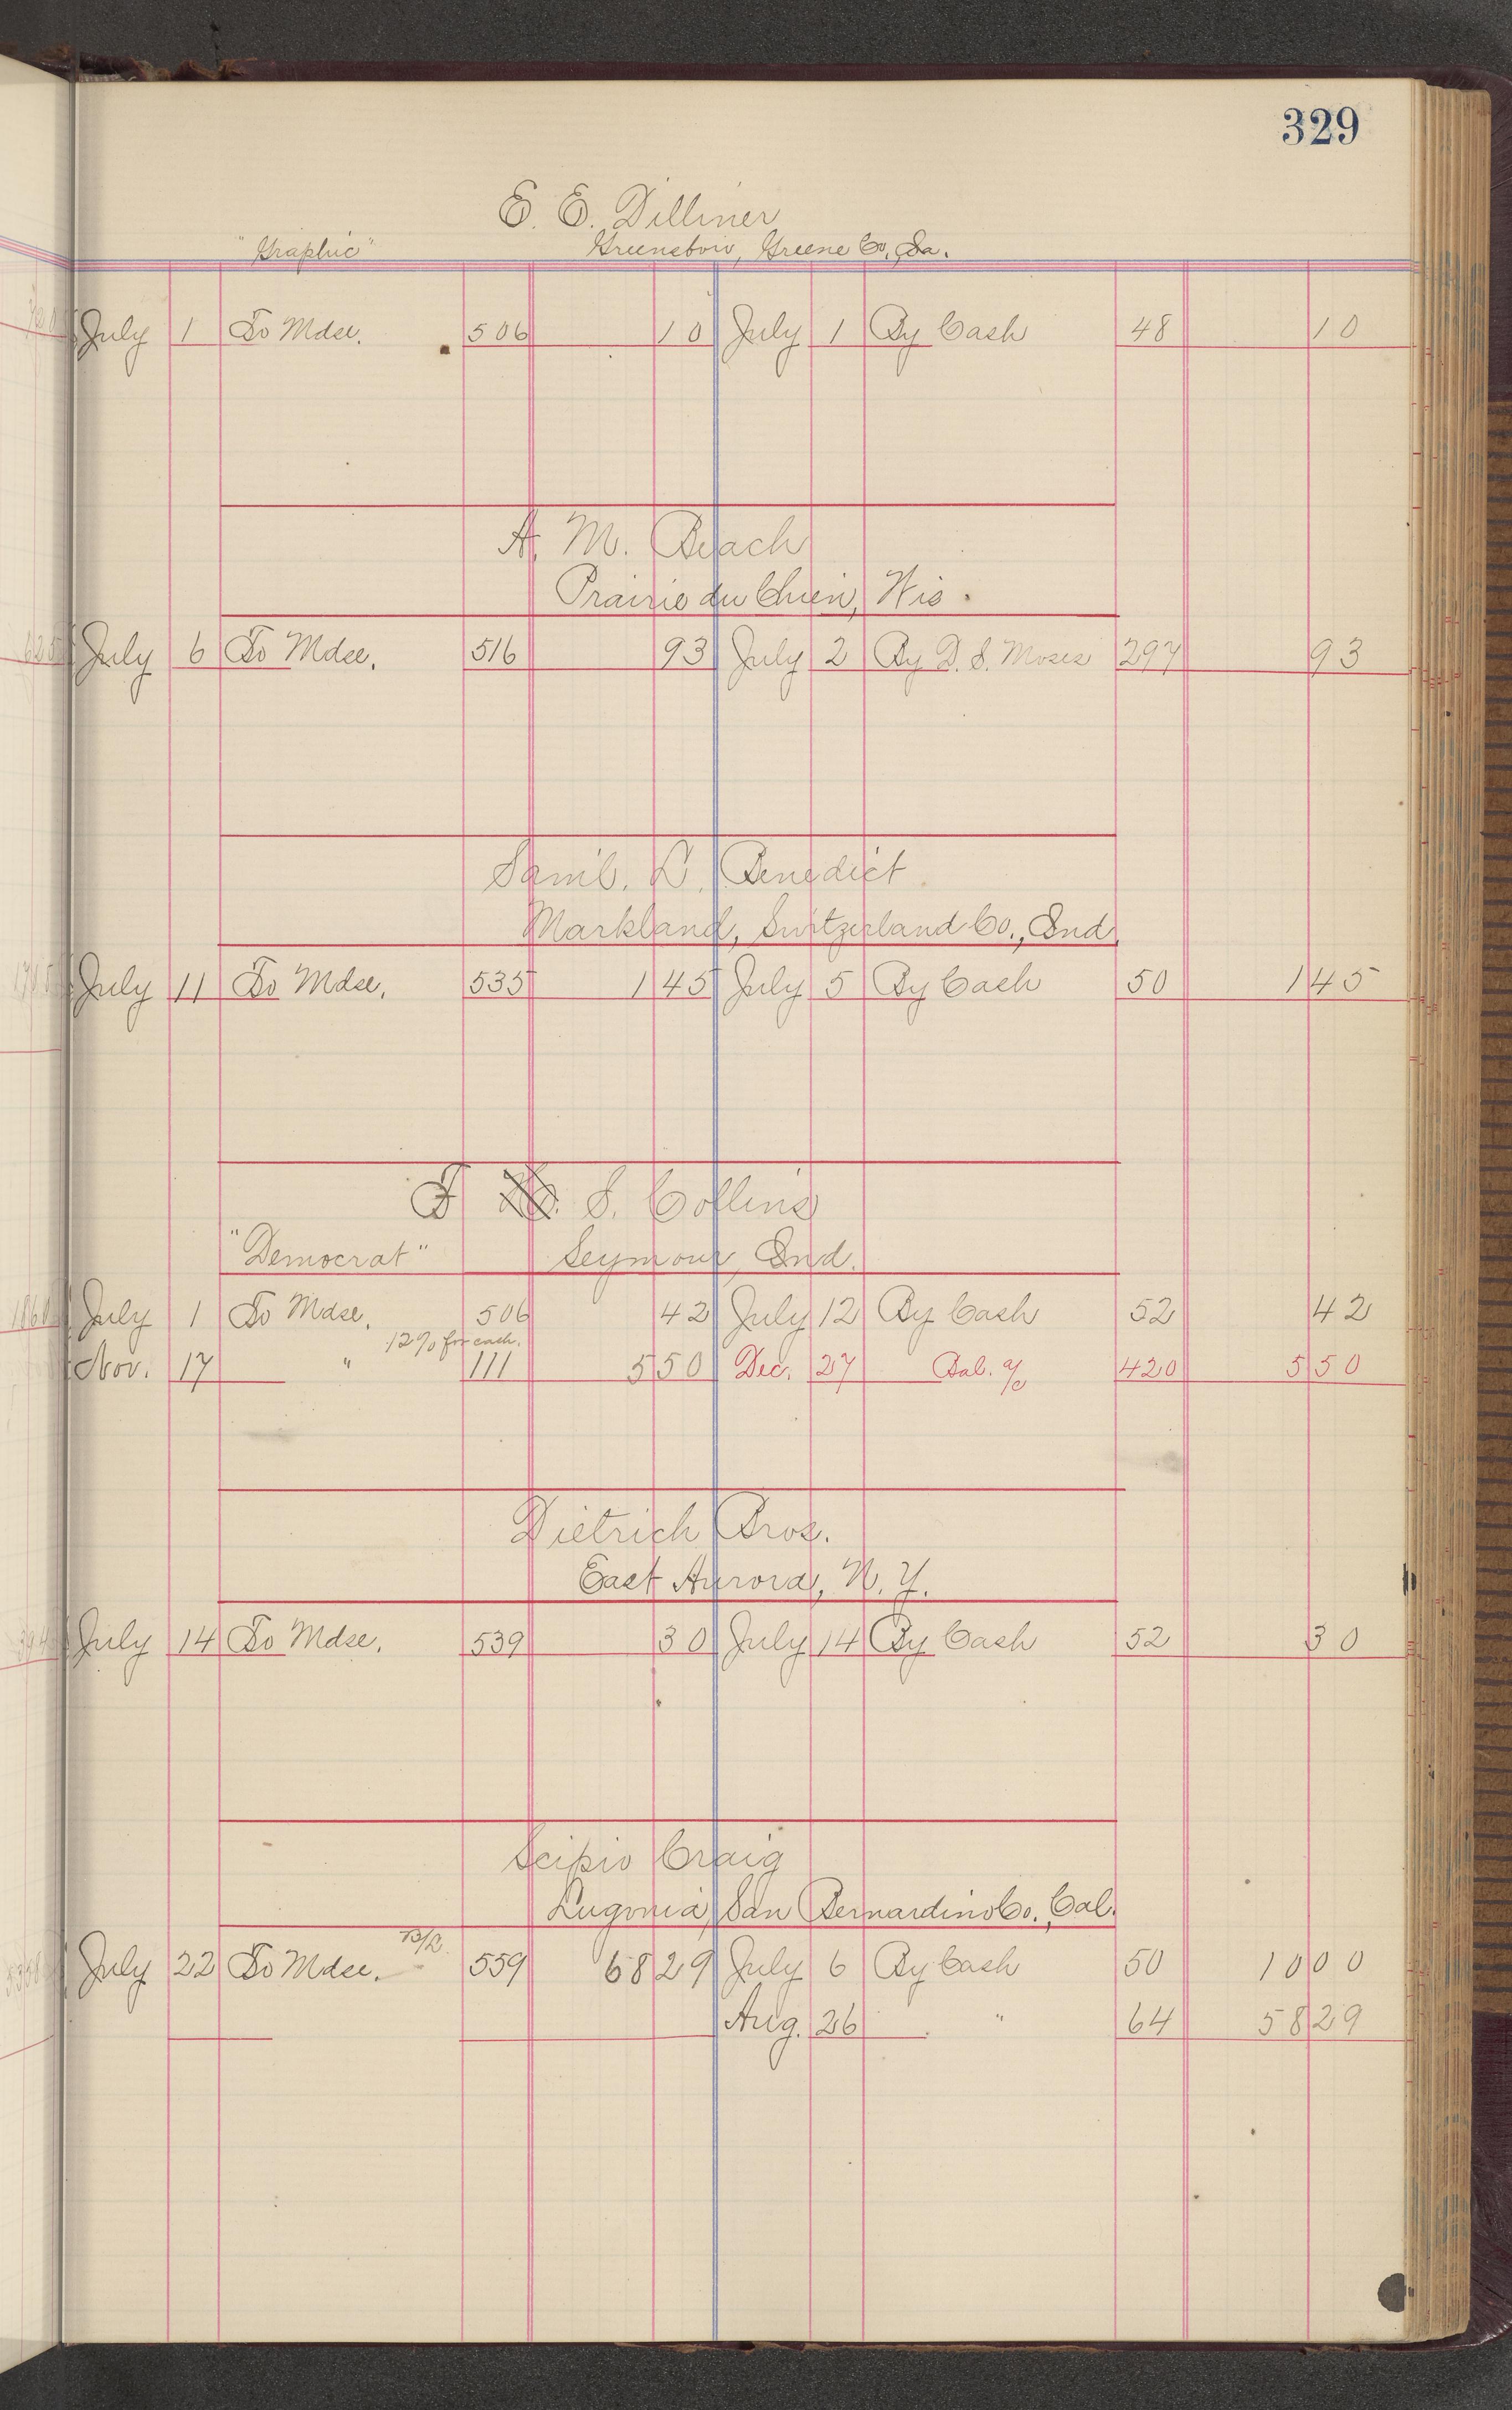 329
E. E. Dilliner
"Graphic" Greensboro, Greene Co., Pa.
July 1 To Mdse. 506 10 July 1 By Cash 48 10
A. M. Beach
Prairie du Chien, Wis.
July 6 To Mdse. 516 93 July 2 By D. S. Moses 297 93
Sam'l. L. Benedict
Markland, Switzerland Co., Ind.
July 11 To Mdse. 535 1 45 July 5 By Cash 50 1 45
S. Collins
"Democrat" Seymour, Ind.
July 1 To Mdse. 506 42 July 12 By Cash 52 42
12% for cash.
Nov. 17 " 111 5 50 Dec. 27 Bal. a/c 420 5 50
Dietrich Bros.
East Aurora, N. Y.
July 14 To Mdse. 539 30 July 14 By Cash 52 30
Scipio Craig
Lugonia, San Bernardino Co., Cal.
B/L.
July 22 To Mdse. 559 68 29 July 6 By Cash 50 10 00
Aug. 26 " 64 58 29